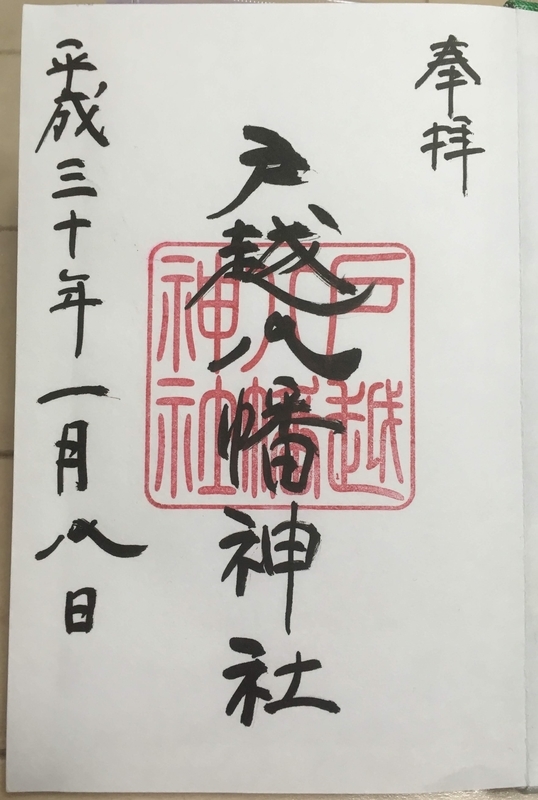 奉拝
戸越八幡神社
戸越
八幡
神社
平成三十年一月八日